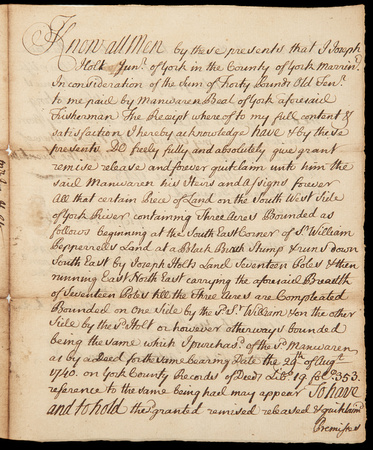 Know all Men by these presents that I Joseph
Holt Junr. of York in the County of York Marrinr.
In consideration of the Sum of Forty Pounds Old Tenr.
to me paid by Manwaren Beal of York aforesaid
Fisherman The Receipt whereof to my full content &
satisfaction I hereby acknowledge have & by these
presents DO freely fully and absolutely give grant
remise release and forever quitclaim unto him the
said Manwaren his Heirs and Assigns forever
All that certain Piece of Land on the South West Side
of York River containing Three Acres Bounded as
follows beginning at the South East Corner of Sr. William
Pepperrells Land at a Black Burch Stump & runs down
South East by Joseph Holts Land Seventeen Poles & then
running East North East carrying the aforesaid Breadth
of Seventeen Poles till the Three Acres are Compleated
Bounded on one Side by the sd. Sr. William & on the other
Side by the sd. Holt or however otherways bounded
being the same which I purchasd. of the sd. Manwaren
as by a Deed for the same bearing Date the 29th. of Augt.
1740. on York County Records of Deeds Libo. 19. folo. 353.
reference to the same being had may appear To have
and to hold the granted remised released & quitclaimd
Premises